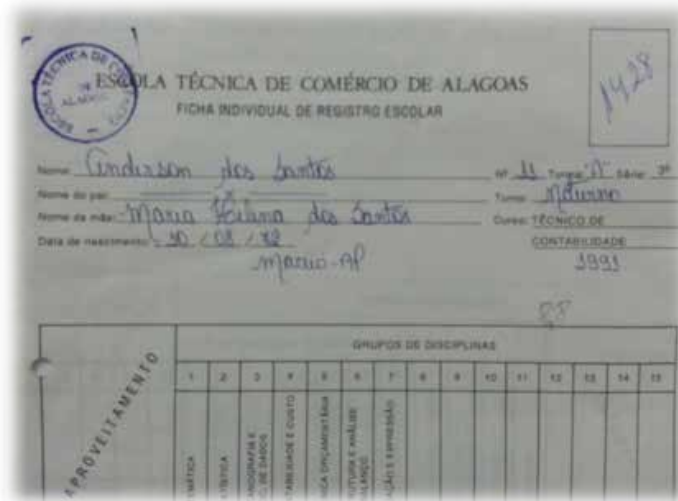 ESCOLA TÉCNICA DE COMÉRCIO DE ALAGOAS
FICHA INDIVIDUAL DE REGISTRO ESCOLAR
1428
Nome: Anderson dos Santos Nº 11 Turma: "A" Série: 3ª
Nome do pai: x Turno: Noturno
Nome da mãe: Maria Helena dos Santos Curso: TÉCNICO DE
Data de nascimento: / 08 / 72 CONTABILIDADE
1991
88
APROVEITAMENTO
GRUPOS DE DISCIPLINAS
1 2 3 4 5 6 7 8 9 10 11 12 13 14 15